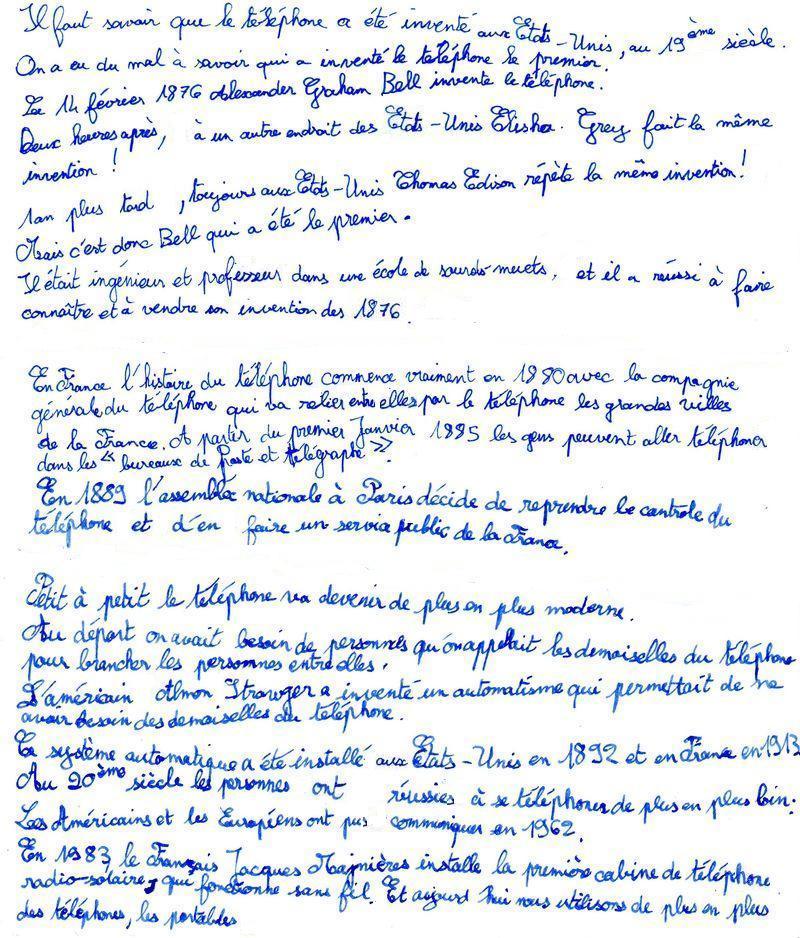 Il faut savoir que le téléphone a été inventé aux Etats-Unis, au 19ème siècle.
On a eu du mal à savoir qui a inventé le téléphone le premier.
Le 14 février 1876 Alexander Graham Bell invente le téléphone.
Deux heures après, à un autre endroit des Etats-Unis Elisha. Grey fait la même
invention !
1an plus tard, toujours aux Etats-Unis Thomas Edison répète la même invention!
Mais c'est donc Bell qui a été le premier.
Il était ingénieur et professeur dans une école de sourds-muets, et il a réussi à faire
connaître et à vendre son invention des 1876.
En France l'histoire du téléphone commence vraiment en 1880 avec la compagnie
générale du téléphone qui va relier entre elles par le téléphone les grandes villes
de la France. A partir du premier Janvier 1885 les gens peuvent aller téléphoner
dans les « bureaux de Poste et télégraphe ».
En 1889 l'assemblée nationale à Paris décide de reprendre le controle du
téléphone et d'en faire un service public de la France.
Petit à petit le téléphone va devenir de plus en plus moderne.
Au départ on avait besoin de personnes qu'on appelait les demoiselles du téléphone
pour brancher les personnes entre elles.
L'américain Almon Strowger a inventé un automatisme qui permettait de ne
avoir besoin des demoiselles du téléphone.
Ce système automatique a été installé aux Etats-Unis en 1892 et en France en 1913
Au 20ème siècle les personnes ont réussies à se téléphoner de plus en plus loin.
Les Américains et les Européens ont pus communiquer en 1962.
En 1983 le Français Jacques Majnières installe la première cabine de téléphone
radio-solaire, qui fonctionne sans fil. Et aujourd'hui nous utilisons de plus en plus
des téléphones, les portables